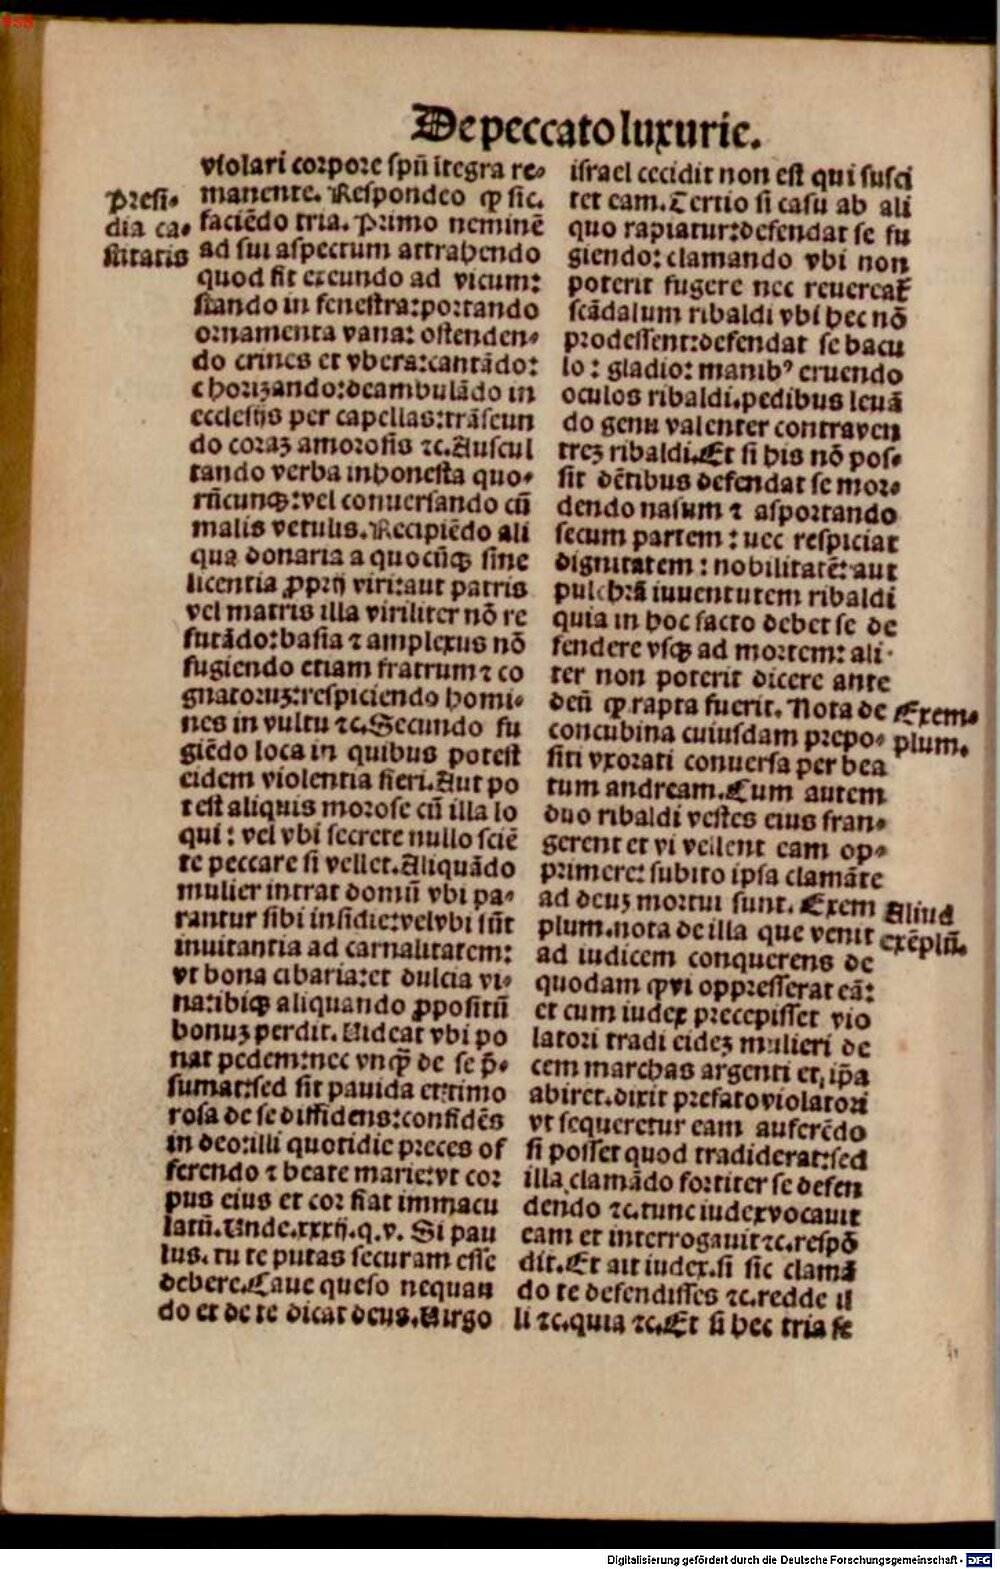 De peccato luxurie.
violari corpore spũ ĩtegra re-
manente. Respondeo ꝙ sic.
faciẽdo tria. Primo neminẽ
ad sui aspectum attrahendo
quod fit exeundo ad vicum:
stando in fenestra: portando
ornamenta vana: ostenden-
do crines et vbera: cantãdo:
chorizando: deambulãdo in
ecclesijs per capellas: trãseun
do coraꝫ amorosis ⁊c. Auscul
tando verba inhonesta quo-
rũcunqꝫ: vel conuersando cũ
malis vetulis. Recipiẽdo ali
qua donaria a quocũqꝫ sine
licentia ꝓprij viri: aut patris
vel matris illa viriliter nõ re
futãdo: basia ⁊ amplexus nõ
fugiendo etiam fratrum ⁊ co
gnatoruꝫ: respiciendo homi-
nes in vultu ⁊c. Secundo fu
giẽdo loca in quibus potest
eidem violentia fieri. Aut po
test aliquis morose cũ illa lo
qui: vel vbi secrete nullo sciẽ
te peccare si vellet. Aliquãdo
mulier intrat domũ vbi pa-
rantur sibi insidie: vel vbi sũt
inuitantia ad carnalitatem:
vt bona cibaria: et dulcia vi-
na: ibiqꝫ aliquando ꝓpositũ
bonuꝫ perdit. Uideat vbi po
nat pedem: nec vnꝙ̃ de se p̃-
sumat: sed sit pauida et timo
rosa de se diffidens: confidẽs
in deo: illi quotidie preces of
ferendo ⁊ beate marie: vt cor
pus eius et cor fiat immacu
latũ. Unde. xxxij. q. v. Si pau
lus. tu te putas securam esse
debere. Caue queso nequan
do et de te dicat deus. Uirgo
Presi-
dia ca-
stitatis
israel cecidit non est qui susci
tet eam. Tertio si casu ab ali
quo rapiatur: defendat se fu
giendo: clamando vbi non
poterit fugere nec reuereat᷑
scãdalum ribaldi vbi hec nõ
prodessent: defendat se bacu
lo: gladio: manibꝰ eruendo
oculos ribaldi. pedibus leuã
do genu valenter contra ven
treꝫ ribaldi. Et si his nõ pos-
sit dẽtibus defendat se mor-
dendo nasum ⁊ asportando
secum partem: nec respiciat
dignitatem: nobilitatẽ: aut
pulchrã iuuentutem ribaldi
quia in hoc facto debet se de
fendere vsqꝫ ad mortem: ali-
ter non poterit dicere ante
deũ ꝙ rapta fuerit. Nota de
concubina cuiusdam prepo-
siti vxorati conuersa per bea
tum andream. Cum autem
duo ribaldi vestes eius fran-
gerent et vi vellent eam op-
primere: subito ipsa clamãte
ad deuꝫ mortui sunt. Exem
plum. nota de illa que venit
ad iudicem conquerens de
quodam ꝙ vi oppresserat eã:
et cum iudex precepisset vio
latori tradi eideꝫ mulieri de
cem marchas argenti et ip̃a
abiret. dixit prefato violatori
vt sequeretur eam auferẽdo
si posset quod tradiderat: sed
illa clamãdo fortiter se defen
dendo ⁊c. tunc iudex vocauit
eam et interrogauit ⁊c. respõ
dit. Et ait iudex. si sic clamã
do te defendisses ⁊c. redde il
li ⁊c. quia ⁊c. Et si hec tria se
Exem-
plum.
Aliud
exẽplũ.
Digitalisierung gefördert durch die Deutsche Forschungsgemeinschaft - DFG